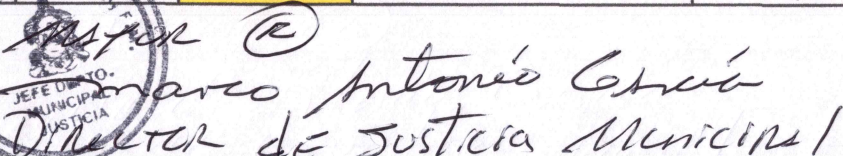 Mayor (R)
Marco Antonio García
Director de Justicia Municipal
JEFE DEPTO.
MUNICIPAL
JUSTICIA